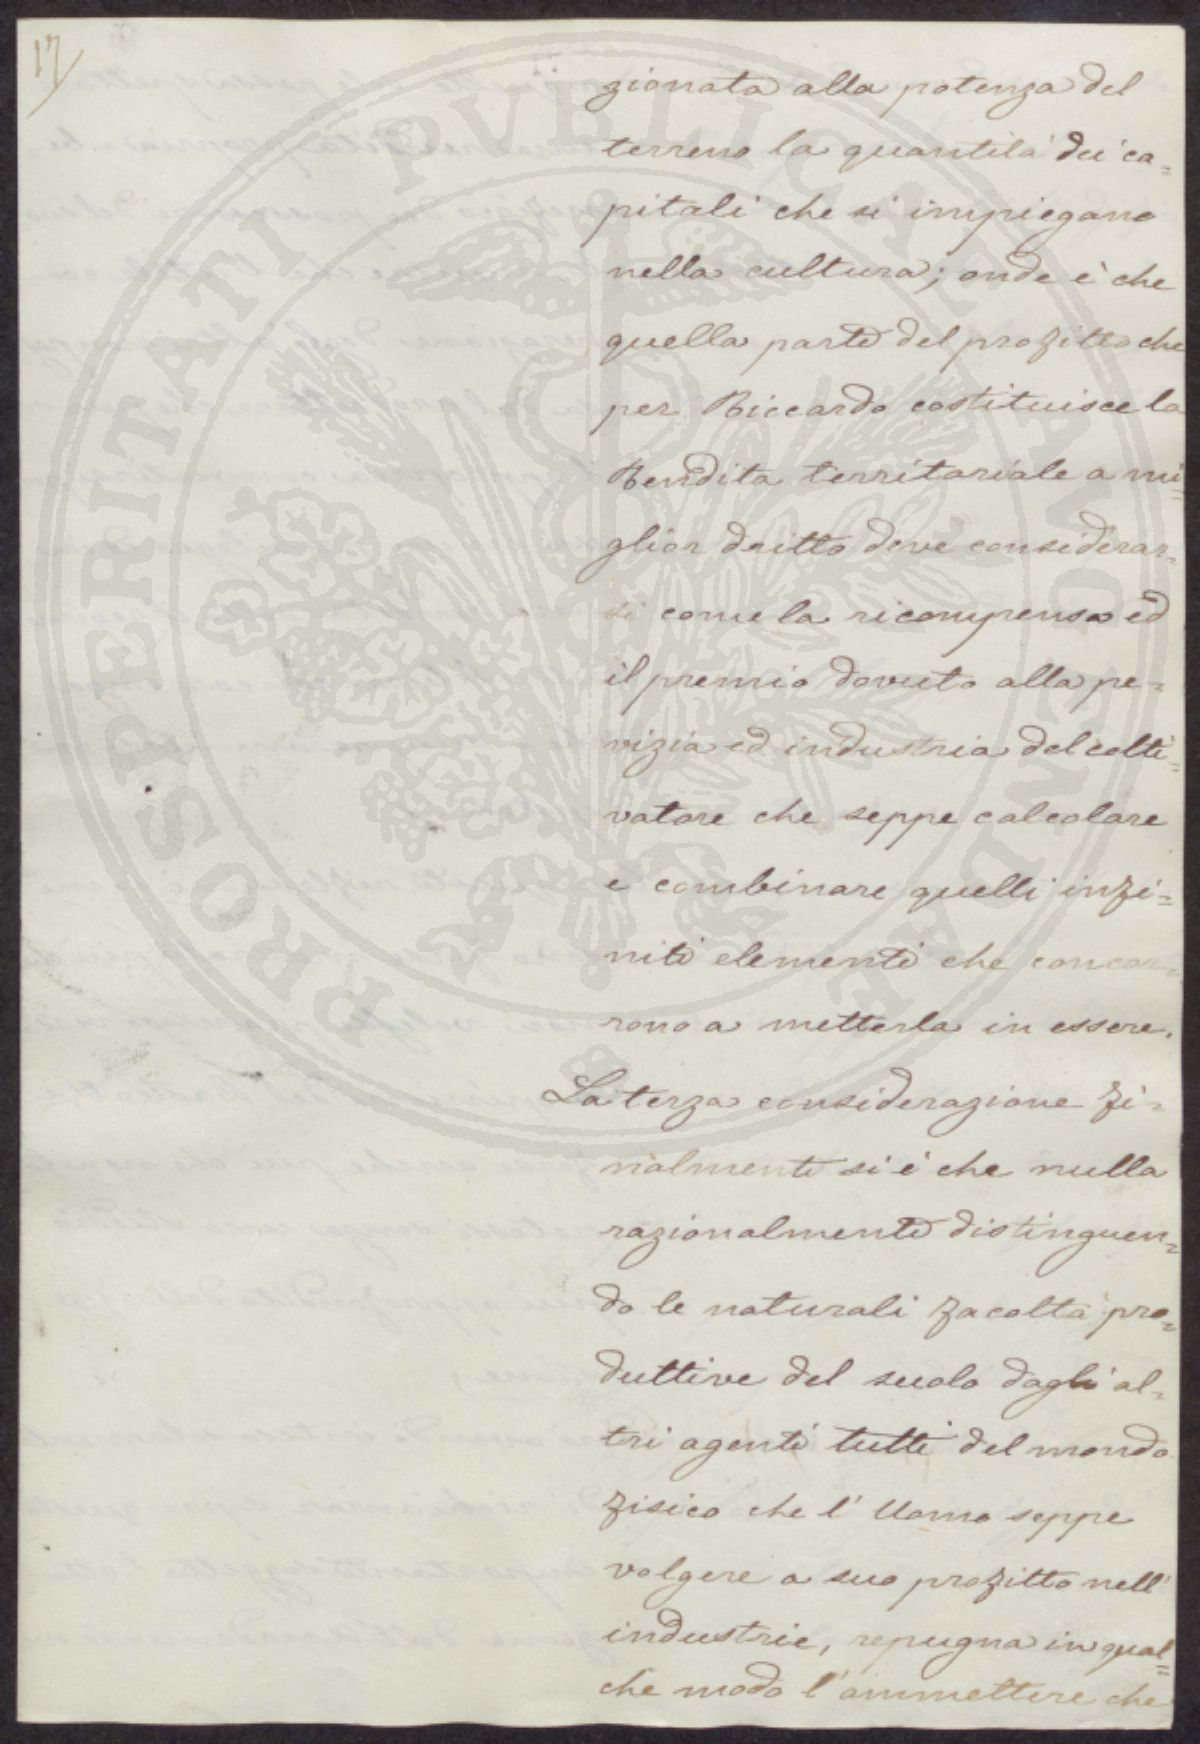 17
zionata alla potenza del
terreno la quantità dei ca=
pitali che si impiegano
nella cultura; onde è che
quella parte del profitto che
per Riccardo costituisce la
Rendita territoriale a mi=
glior dritto deve considerar=
si come la ricompensa ed
il premio dovuto alla pe=
rizia ed industria del colti=
vatore che seppe calcolare
e combinare quelli infi=
niti elementi che concor=
rono a metterla in essere.
La terza considerazione fi=
nalmente si è che nulla
razionalmente distinguen=
do le naturali facoltà pro=
duttive del suolo dagli al=
tri agenti tutti del mondo
fisico che l'Uomo seppe
volgere a suo profitto nell'
industrie, repugna in qual=
che modo l'ammettere che
PROSPERITATI PVBLICAE AVGENDAE